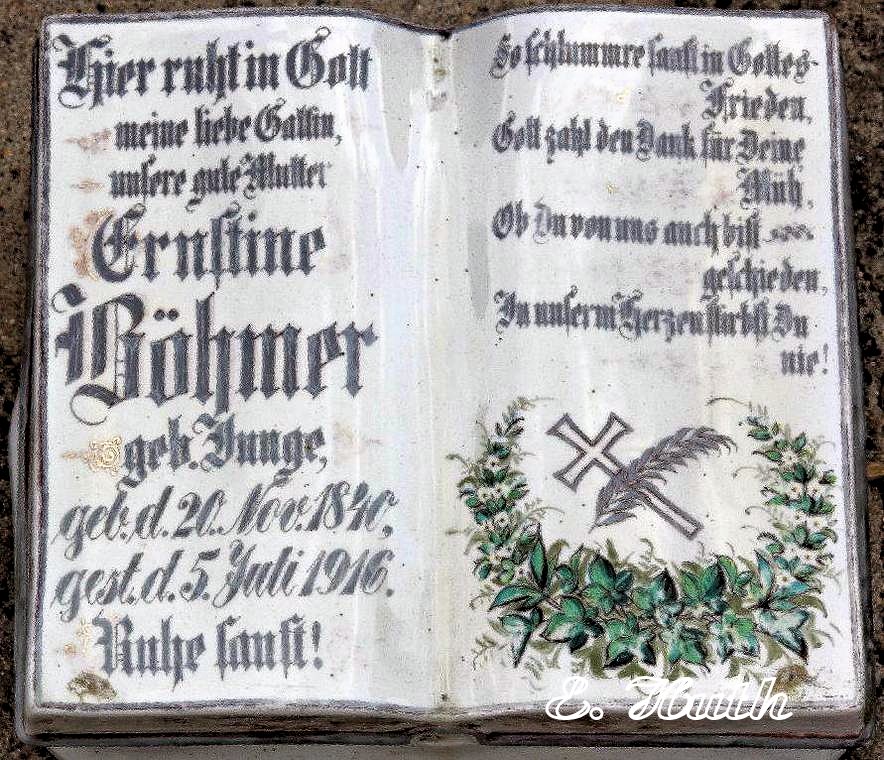 Hier ruht in Gott
meine liebe Gattin,
unsere gute Mutter
Ernstine
Böhmer
geb. Junge,
geb. d. 20. Nov. 1840,
gest. d. 5. Juli 1916.
Ruhe sanft!
So schlummre sanft in Gottes
Frieden,
Gott zahl den Dank für Deine
Müh,
Ob Du von uns auch bist
geschieden,
In unserm Herzen stirbst Du
nie!
E. Huth